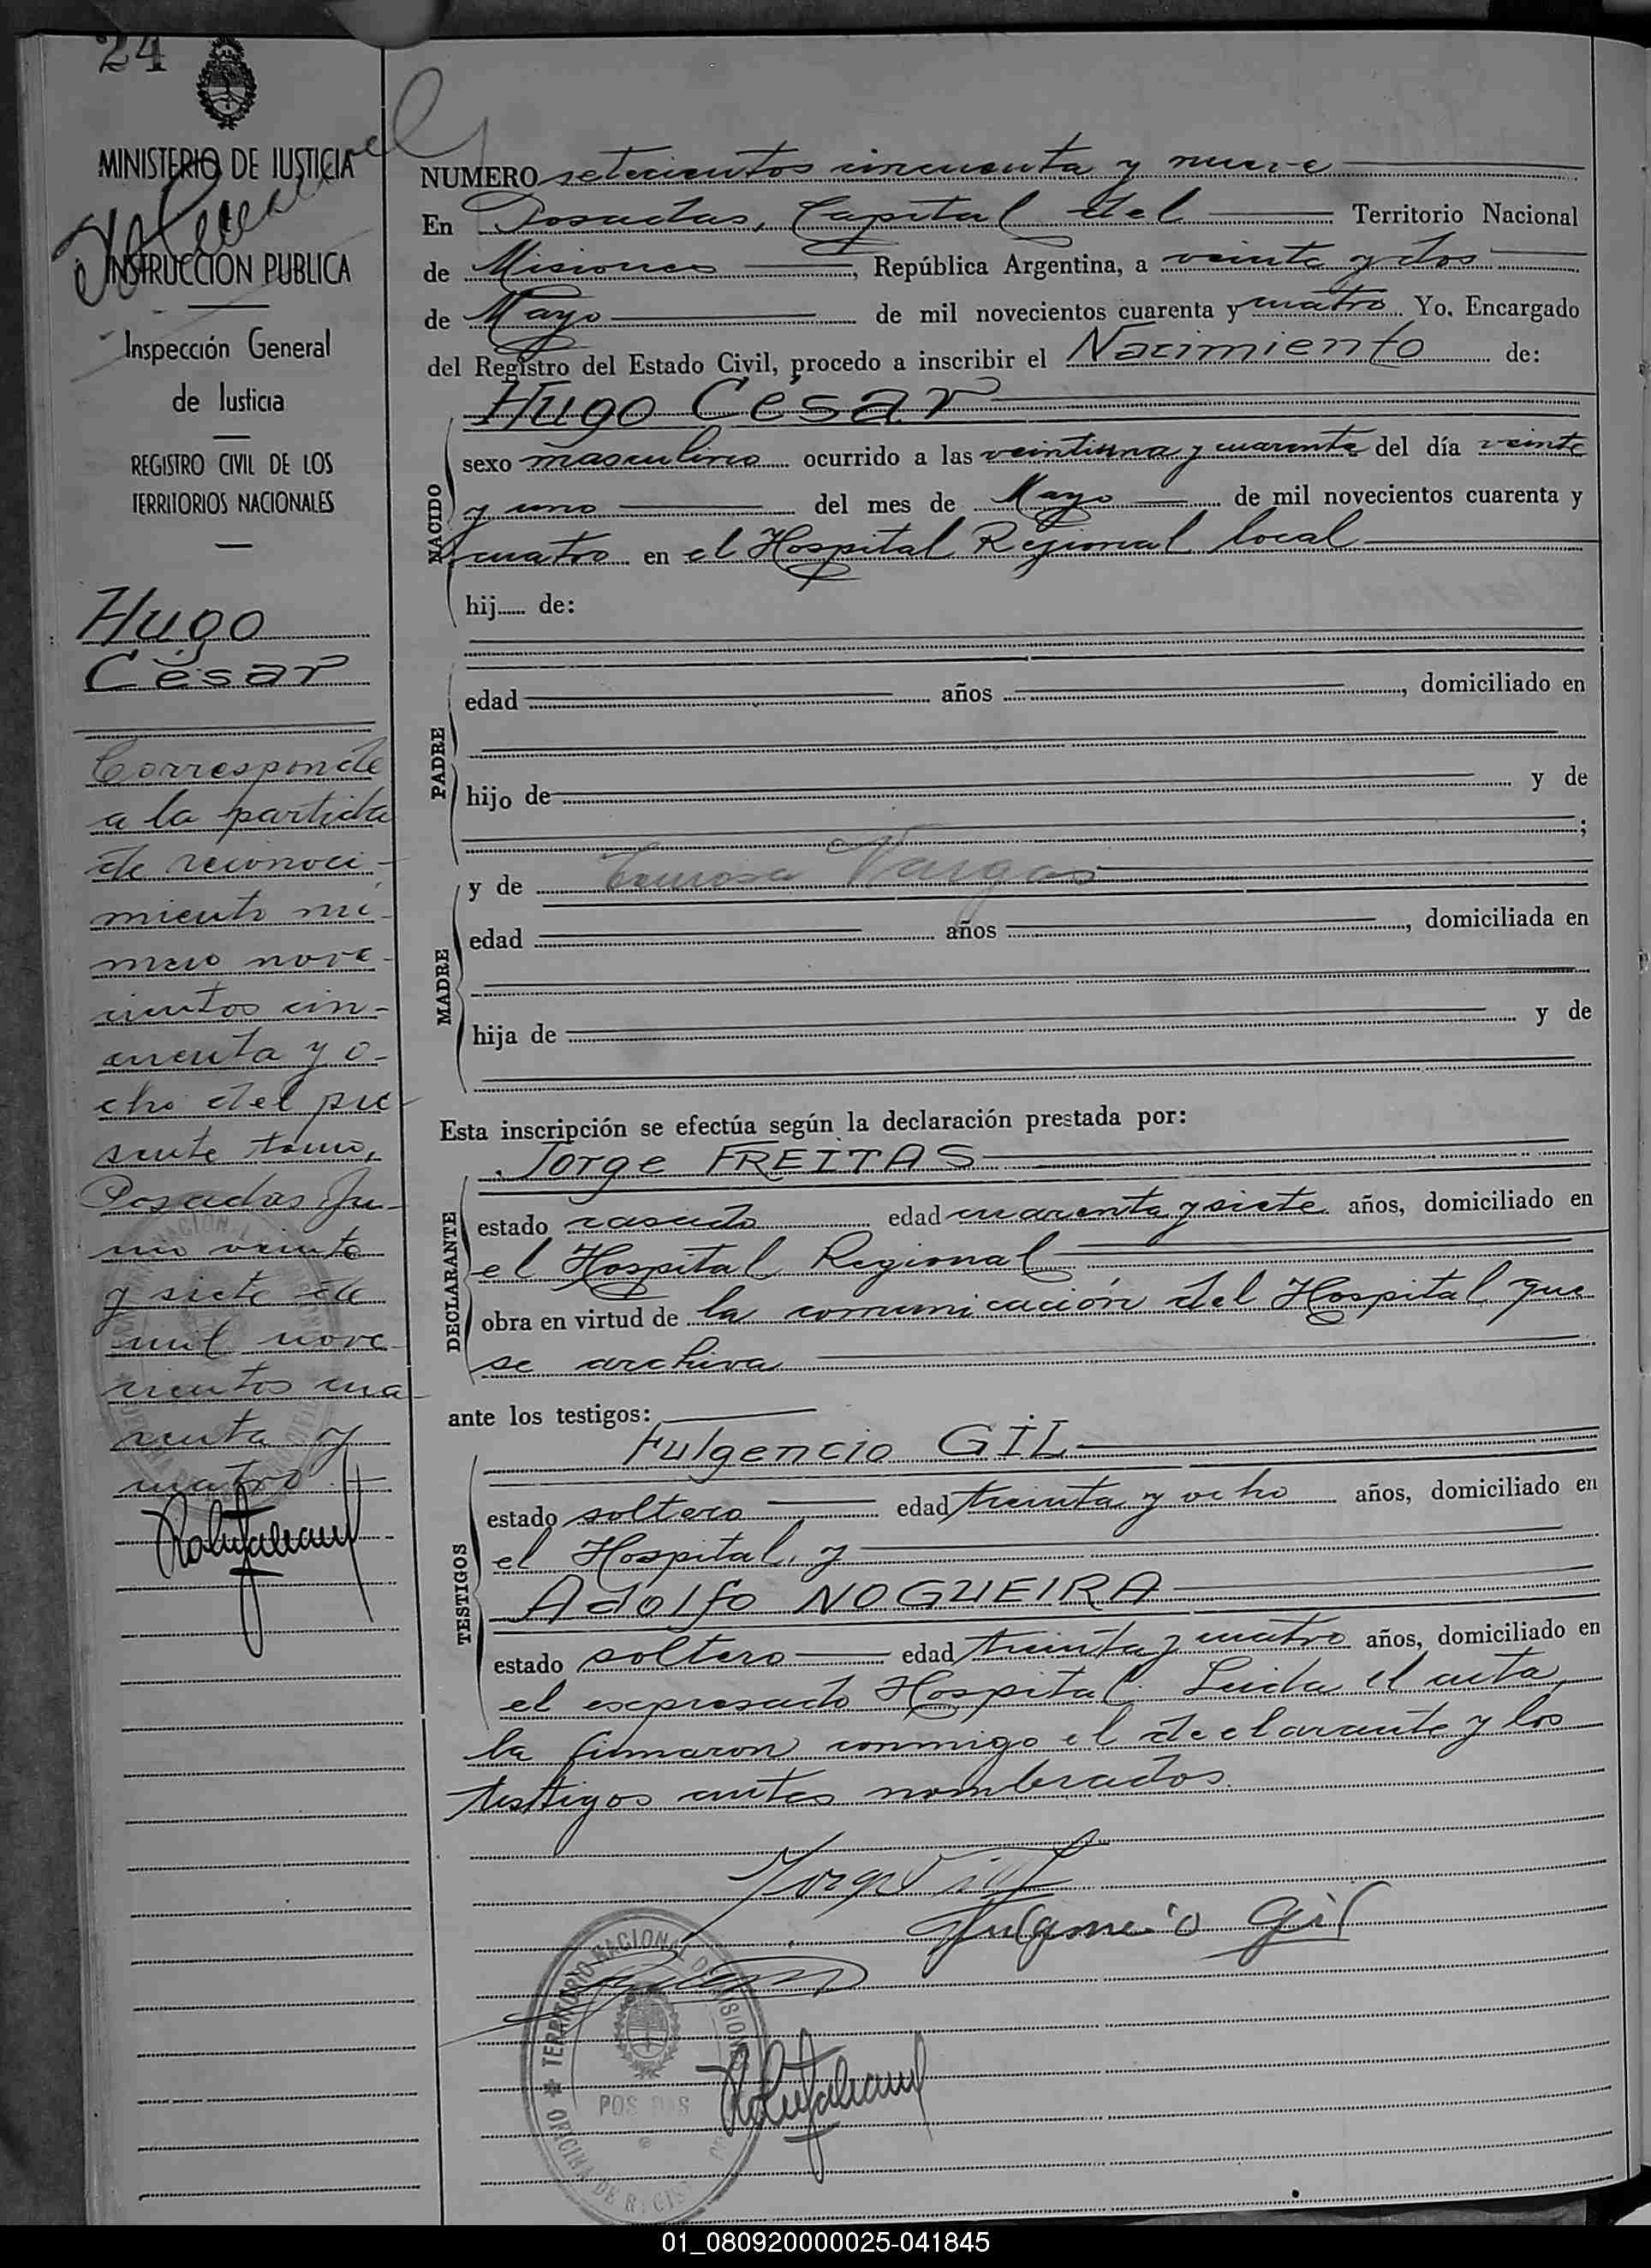 24
MINISTERIO DE JUSTICIA
E INSTRUCCION PUBLICA
Inspección General
de Justicia
REGISTRO CIVIL DE LOS
TERRITORIOS NACIONALES
Hugo
César
Corresponde
a la partida
de reconoci-
miento nú-
mero nove-
cientos cin-
cuenta y o-
cho del pre-
sente tomo,
Posadas Ju-
nio veinte
y siete de
mil nove-
cientos cua-
renta y
cuatro
NUMERO setecientos cincuenta y nueve
En Posadas, Capital del Territorio Nacional
de Misiones, República Argentina, a veinte y dos
de Mayo de mil novecientos cuarenta y cuatro Yo. Encargado
del Registro del Estado Civil, procedo a inscribir el Nacimiento de:
Hugo César
NACIDO
sexo masculino ocurrido a las veintiuna y cuarenta del día veinte
y uno del mes de Mayo de mil novecientos cuarenta y
cuatro en el Hospital Regional local
hij...... de:
PADRE
edad años , domiciliado en
hijo de y de
;
MADRE
y de Vargas
edad años , domiciliada en
hija de y de
Esta inscripción se efectúa según la declaración prestada por:
Jorge FREITAS
DECLARANTE
estado casado edad cuarenta y siete años, domiciliado en
el Hospital Regional
obra en virtud de la comunicación del Hospital que
se archiva
ante los testigos:
Fulgencio GIL
TESTIGOS
estado soltero edad treinta y ocho años, domiciliado en
el Hospital, y
Adolfo NOGUEIRA
estado soltero edad treinta y cuatro años, domiciliado en
el expresado Hospital. Leida el acta,
la firmaron conmigo el declarante y los
testigos antes nombrados.
Fulgencio Gil
TERRITORIO NACIONAL DE MISIONES
POSADAS
OFICINA DE REGIS
01_080920000025-041845